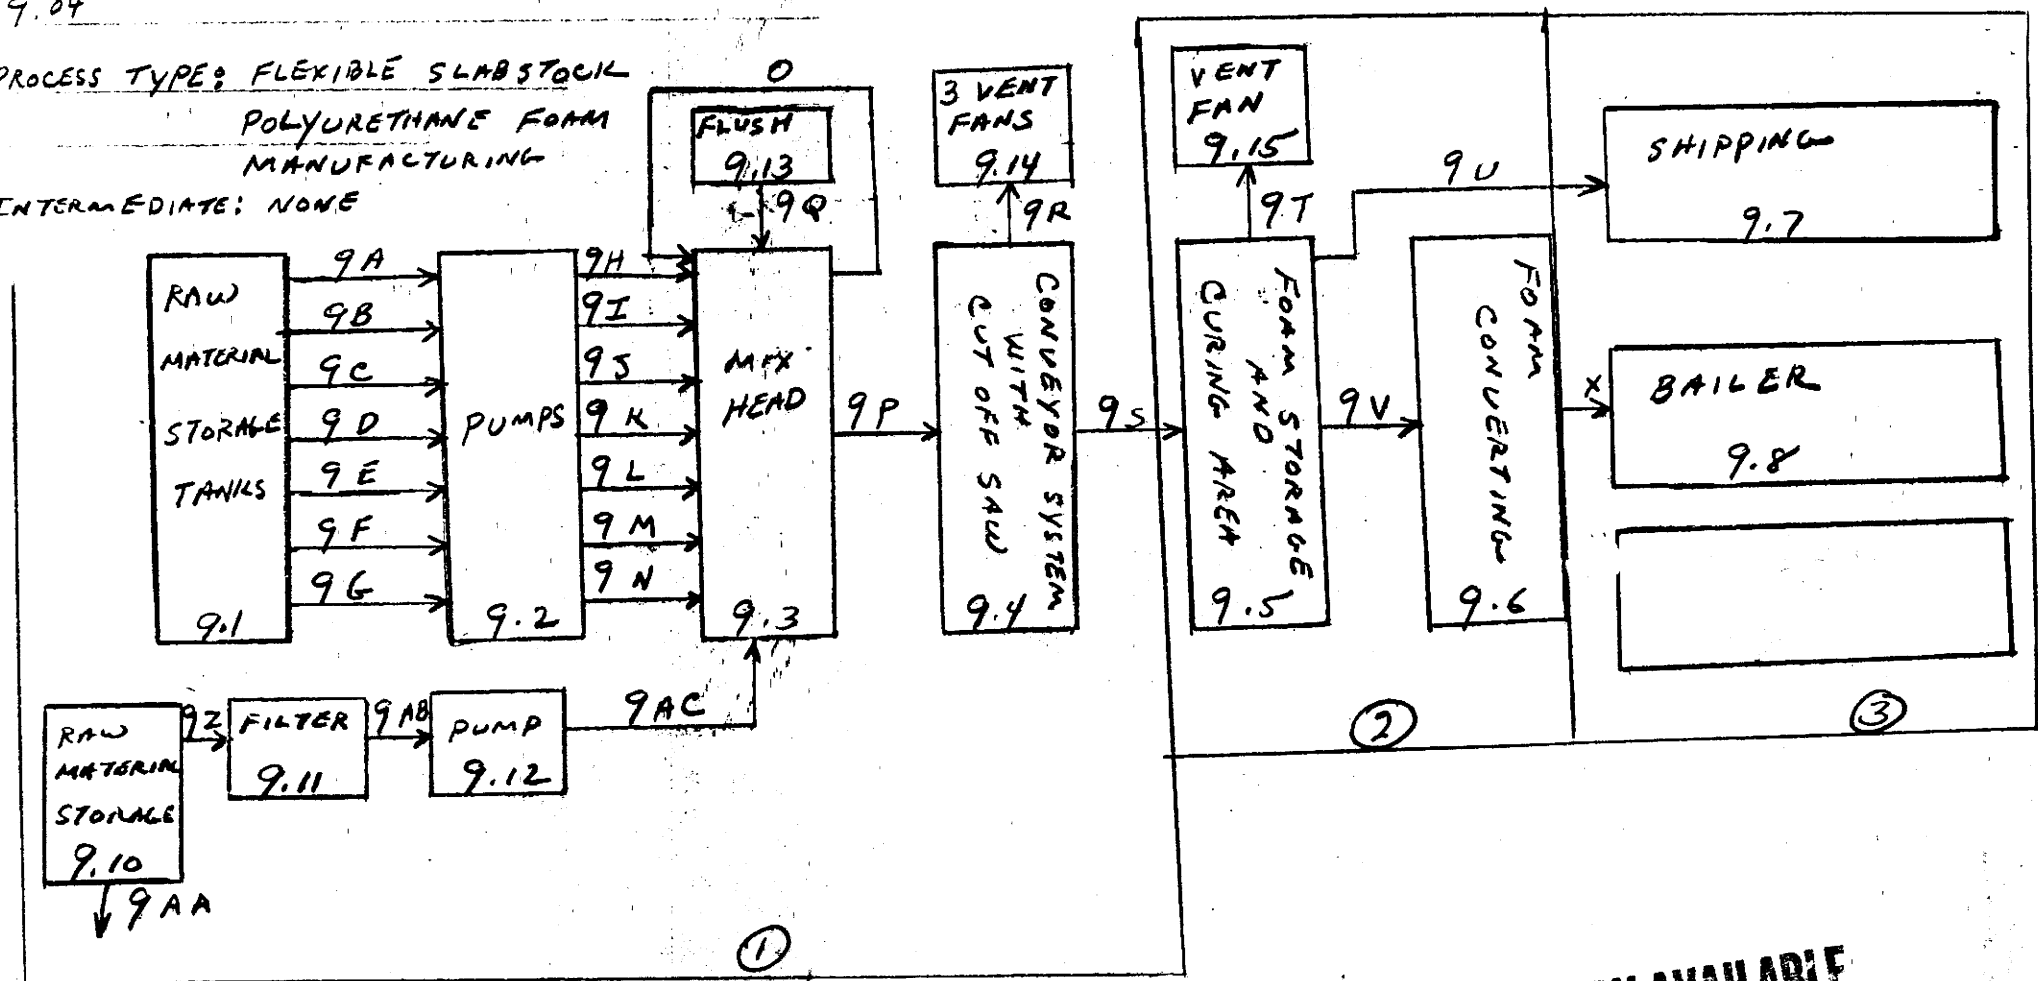 9.04
PROCESS TYPE: FLEXIBLE SLABSTOCK
POLYURETHANE FOAM
MANUFACTURING
INTERMEDIATE: NONE
O
FLUSH
9.13
9Q
3 VENT
FANS
9.14
9R
VENT
FAN
9.15
9T
9U
SHIPPING
9.7
RAW
MATERIAL
STORAGE
TANKS
9.1
9A
9B
9C
9D
9E
9F
9G
PUMPS
9.2
9H
9I
9J
9K
9L
9M
9N
MIX
HEAD
9.3
9P
CONVEYOR SYSTEM
WITH
CUT OFF SAW
9.4
9S
FOAM STORAGE
AND
CURING AREA
9.5
9V
FOAM
CONVERTING
9.6
X
BAILER
9.8
RAW
MATERIAL
STORAGE
9.10
9AA
9Z
FILTER
9.11
9AB
PUMP
9.12
9AC
1
2
3
AVAILABLE